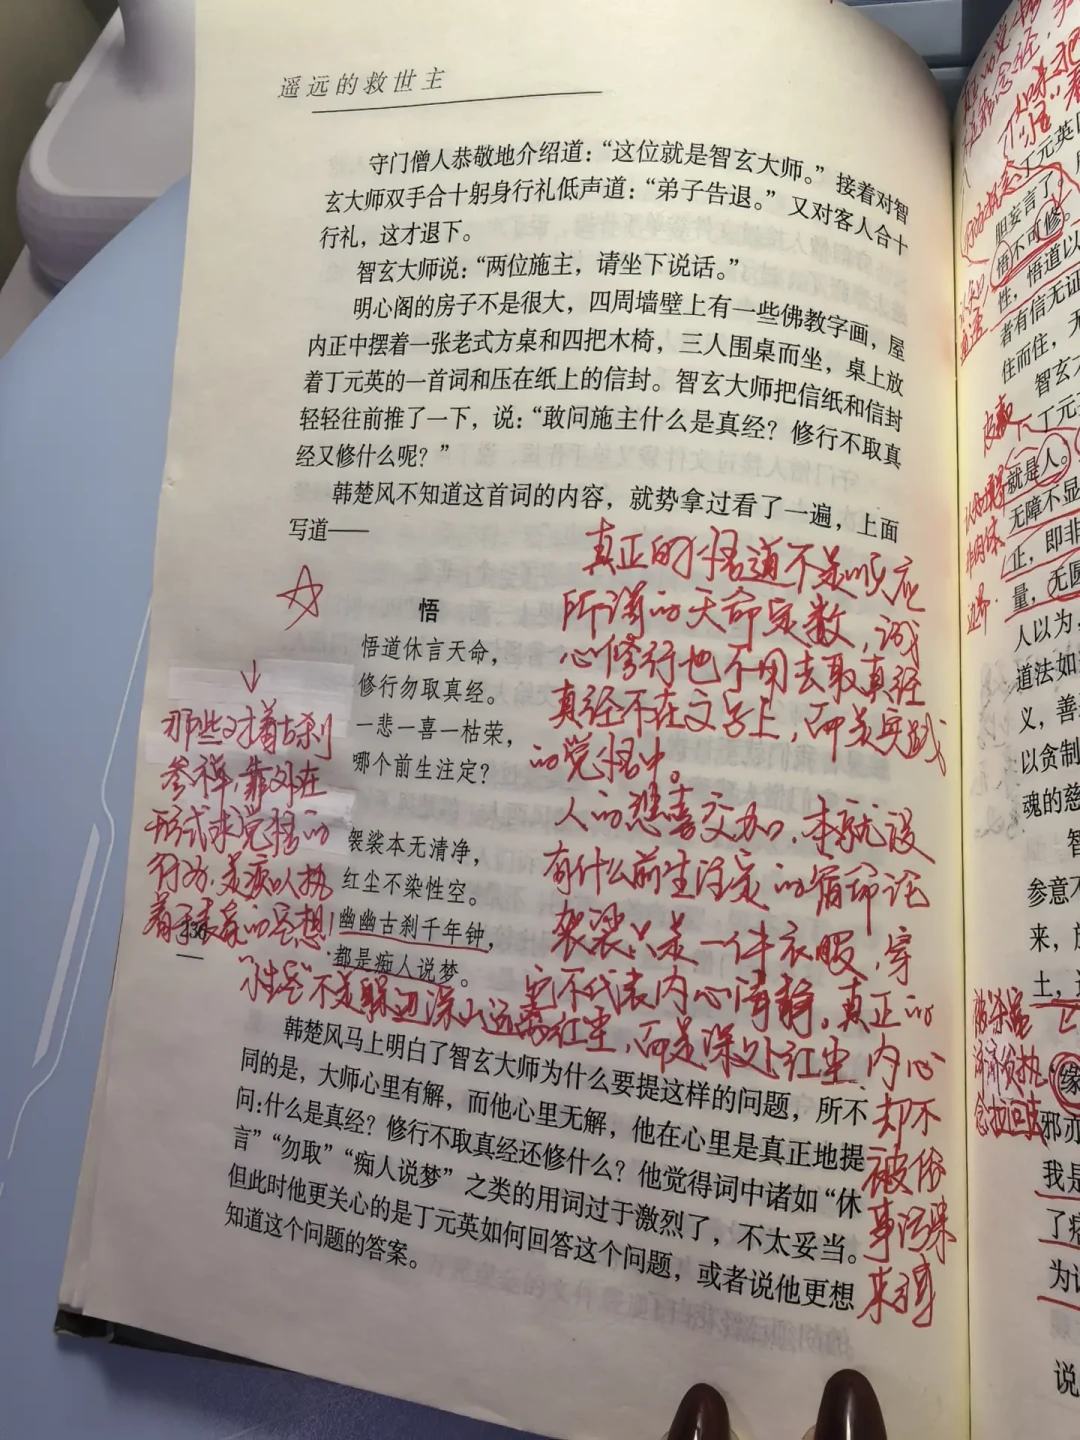 遥远的救世主
守门僧人恭敬地介绍道：“这位就是智玄大师。”接着对智
玄大师双手合十躬身行礼低声道：“弟子告退。”又对客人合十
行礼，这才退下。
智玄大师说：“两位施主，请坐下说话。”
明心阁的房子不是很大，四周墙壁上有一些佛教字画，屋
内正中摆着一张老式方桌和四把木椅，三人围桌而坐，桌上放
着丁元英的一首词和压在纸上的信封。智玄大师把信纸和信封
轻轻往前推了一下，说：“敢问施主什么是真经？修行不取真
经又修什么呢？”
韩楚风不知道这首词的内容，就势拿过看了一遍，上面
写道——
真正的悟道不是顺应
所谓的天命定数，诚
心修行也不用去取真经
真经不在文字上，而是实践
的觉悟中。
人的悲喜交加，本就没
有什么前生注定的宿命论
袈裟只是一件衣服，穿
它不代表内心清静。真正的
“性空”不是躲边深山远离红尘，而是深处红尘内心
却不
被俗
事污染
悟
悟道休言天命，
修行勿取真经。
一悲一喜一枯荣，
哪个前生注定？
袈裟本无清净，
红尘不染性空。
幽幽古刹千年钟，
都是痴人说梦。
那些对着古刹
参禅，靠外在
形式求觉悟的
行为，是痴人执
着于表象的空想！
韩楚风马上明白了智玄大师为什么要提这样的问题，所不
同的是，大师心里有解，而他心里无解，他在心里是真正地提
问：什么是真经？修行不取真经还修什么？他觉得词中诸如“休
言”“勿取”“痴人说梦”之类的用词过于激烈了，不太妥当。
但此时他更关心的是丁元英如何回答这个问题，或者说他更想
知道这个问题的答案。
丁元英
胆妄言了。
悟不可修。
性，悟道以
者有信无证
住而住，无
智玄
丁元
就是人。
无障不显
正，即非
量，无圆
边界
人以为，
道法如
义，善
以贪制
魂的慈
智
参意不
来，
土，
缘
邪亦
我是
了
为
说